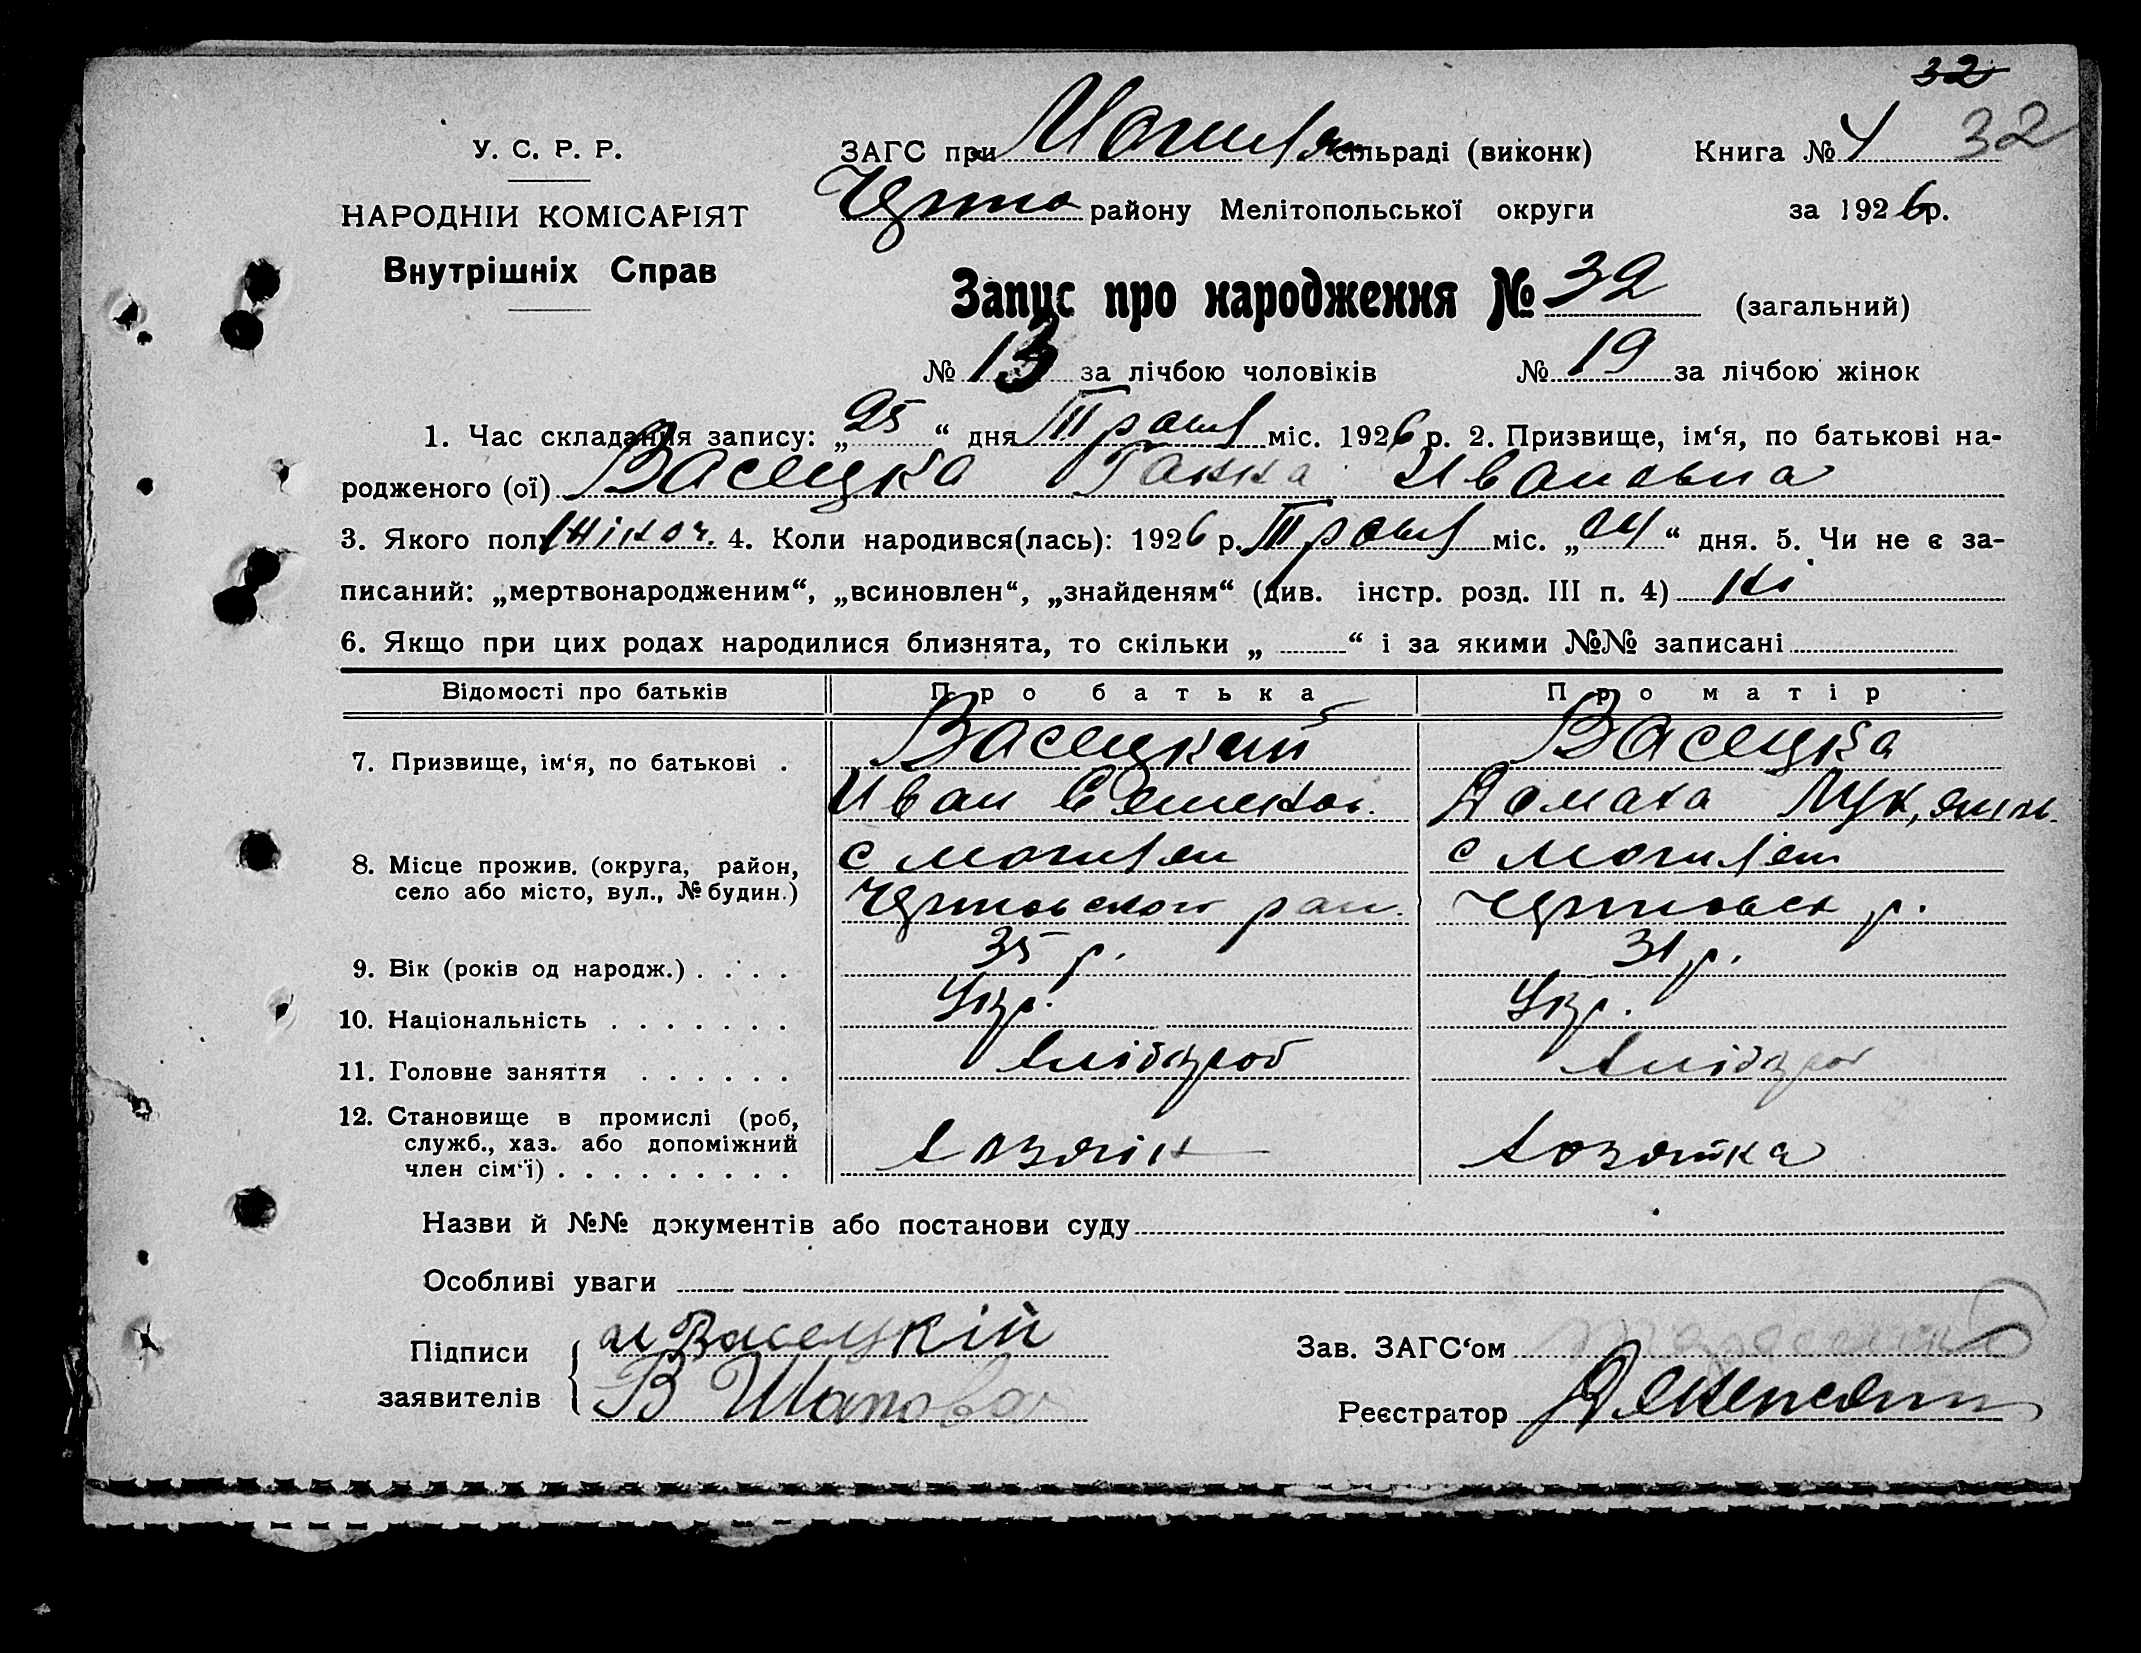 32
У. С. Р. Р.
ЗАГС при сільраді (виконк)
Книга № 4 32
НАРОДНІЙ КОМІСАРІЯТ
району Мелітопольської округи
за 1926 р.
Внутрішніх Справ
Запис про народження № 32 (загальний)
№ 13 за лічбою чоловіків № 19 за лічбою жінок
1. Час складання запису: „25“ дня Травня міс. 1926 р. 2. Призвище, ім‘я, по батькові на-
родженого (ої) Васецка Ганна Ивановна
3. Якого полу жіноч. 4. Коли народився(лась): 1926 р. Травня міс. „24“ дня. 5. Чи не є за-
писаний: „мертвонародженим“, „всиновлен“, „знайденям“ (див. інстр. розд. III п. 4) ні
6. Якщо при цих родах народилися близнята, то скільки „ “ і за якими №№ записані
Відомості про батьків Про батька Про матір
7. Призвище, ім‘я, по батькові . Васецкий Васецка
Иван Домаха
8. Місце прожив. (округа, район,
село або місто, вул., № будин.)
с с
р.
9. Вік (років од народж.) . . . . 35 р. 31 р.
10. Національність . . . . . . . Укр. Укр.
11. Головне заняття . . . . . . хлібороб хлібороб
12. Становище в промислі (роб,
служб., хаз. або допоміжний
член сім‘ї) . . . . . . . . . хозяін хозяйка
Назви й №№ документів або постанови суду
Особливі уваги
Підписи
заявителів
и Васецкій
В Шаповал
Зав. ЗАГС‘ом
Реєстратор